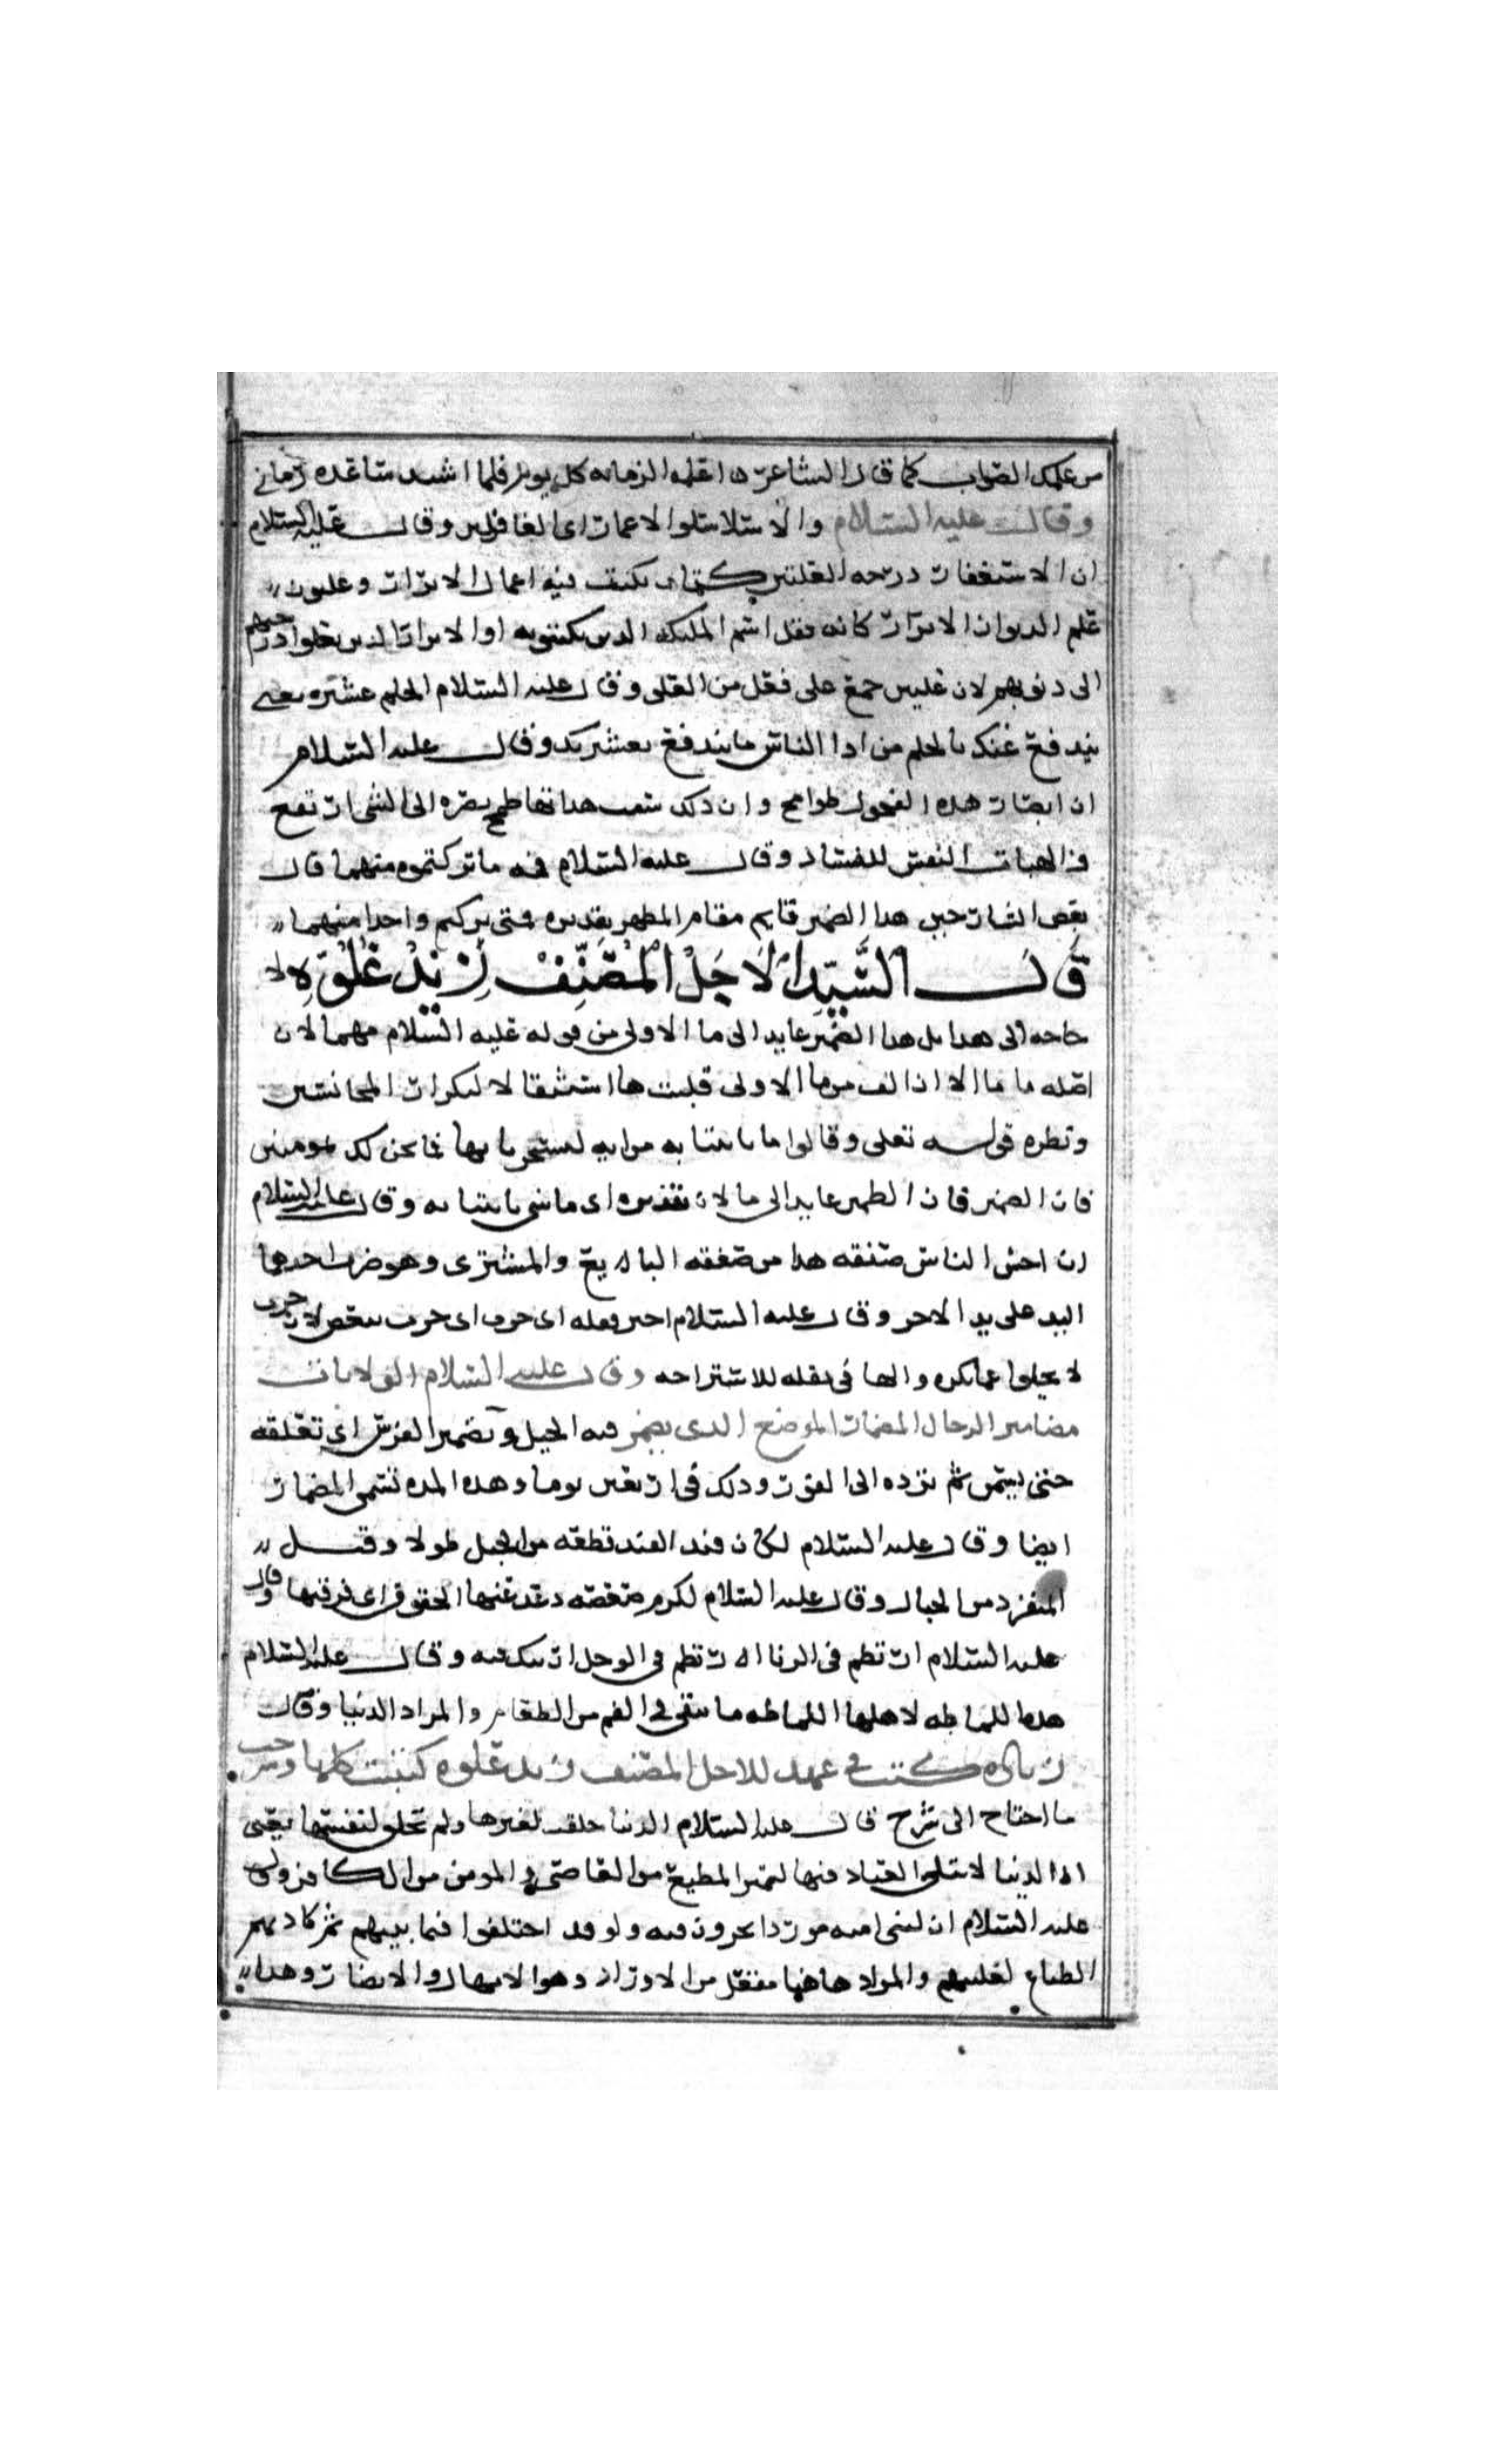 من علمك الصواب كما قال الشاعر ه اعلمه الرمايه كل يوم فلما اشتد ساعده رماني
وقال عليه السلام والاسلاسلوا الاعمار اى الغافلين وقال عليه السلام
ان الاستغفار درجه العليين كتاب يكتب فيه اعمال الابرار وعليون
علم الديوان الابرار كانه نقل اسم المليكه الدين يكتبونه اوا الابرار الدين درجتهم
الى دنوبهم لان عليين جمع على فعل من العلى وقال عليه السلام الحلم عشيره يعنى
يندفع عنك بالحلم من ادا الناس ما يندفع بعشيرتك وقال عليه السلام
ان ابصار هده الفحول طوامح وان دلك سبب هبابها طمح بصره الى الشى ارتفع
والهباب النفس للفساد وقال عليه السلام فيه ما تركتموه منهما قال
بعض الشارحين هدا الضمير قايم مقام المظهر تقديره متى تركتم واحدا منهما
قال السيد الاجل المصنف زيد علوه لا
حاجه الى هدا بل هدا الضمير عايد الى ما الاولى من قوله عليه السلام مهما لان
اصله ما ما الا ان الف من ما الاولى قلبت ها استثقالا لتكرار المجانستين
ونظيره قوله تعلى وقالوا مهما تاتنا به من ايه لتسحرنا بها فما نحن لك بمومنين
فان الضمير عايد الى ما لان تقديره اى ما شى تاتنا به وقال عليه السلام
ان اخس الناس صفقه هدا من صفقه البايع والمشترى وهو ضرب احدهما
اليد على يد الاخر وقال عليه السلام اخبر تقله اى جرب اى جرب تبغض لان
لا يخلوا عما تكره والها فى تقله للاستراحه وقال عليه السلام الولايات
مضامير الرجال المضمار الموضع الدى يضمر فيه الخيل وتضمير الفرس اى تعلفه
حتى يسمن ثم ترده الى القوت ودلك فى اربعين يوما وهده المده تسمى المضمار
ايضا وقال عليه السلام لكان فندا الفند قطعه من الجبل طولا وقيل
المنفرد من الجبال وقال عليه السلام لكرم صعصعه دعدعتها الحقوق اى فرقتها وقال
عليه السلام ارتطم فى الربا ارتطم فى الوحل ارتبك فيه وقال عليه السلام
هده اللماظه لاهلها اللماظه ما يبقى فى الفم من الطعام والمراد الدنيا وقال
زياده كتبت فى عهد للاجل المصنف زيد علوه كتبت كلها وشرحت
ما احتاج الى شرح قال عليه السلام الدنيا خلقت لغيرها ولم تخلق لنفسها يعنى
ان الدنيا لابتلى العباد فيها ليميز المطيع من العاصى والمومن من الكافر وقال
عليه السلام ان لبنى اميه مرودا يجرون فيه ولو قد اختلفوا فيما بينهم ثم كادتهم
الضباع لغلبتهم والمرود هاهنا مفعل من الارواد وهو الامهال والانظار وهدا